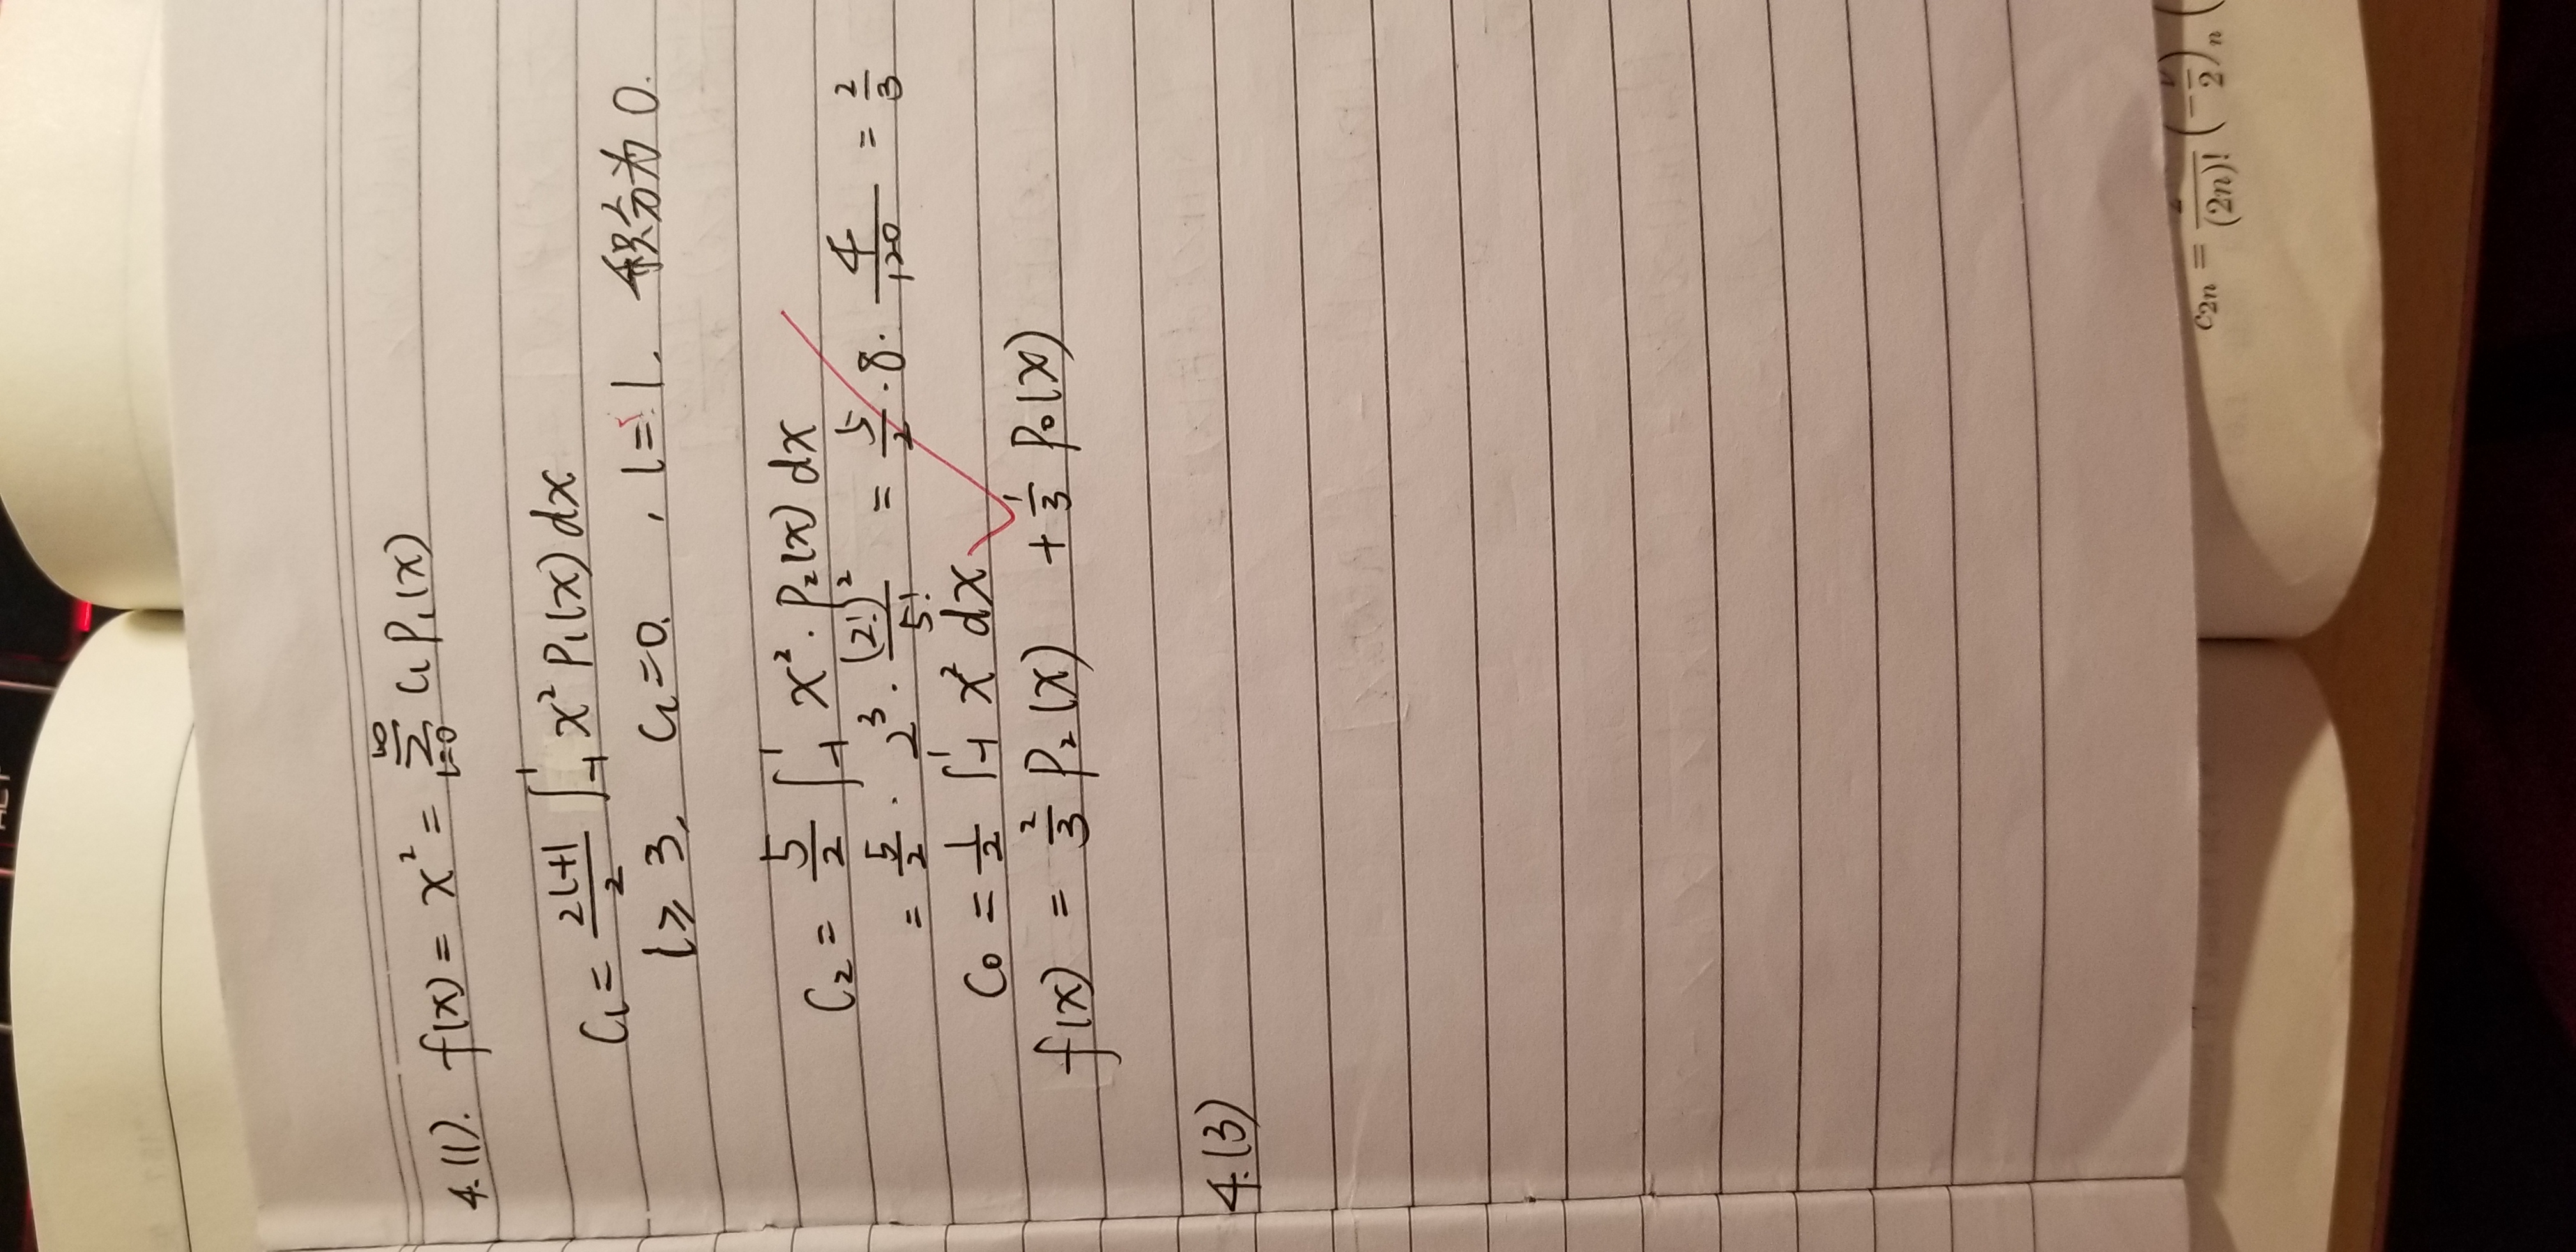 4.(1). f(x) = x² = ∑_{l=0}^{∞} C_l P_l(x)
C_l = \frac{2l+1}{2} ∫_{-1}^{1} x² P_l(x) dx
l ≥ 3, C_l = 0. , l = 1. 积分为 0.
C₂ = \frac{5}{2} ∫_{-1}^{1} x² · P₂(x) dx
= \frac{5}{2} · 2³ · \frac{(2!)²}{5!} = \frac{5}{2} · 8 · \frac{4}{120} = \frac{2}{3}
C₀ = \frac{1}{2} ∫_{-1}^{1} x² dx
f(x) = \frac{2}{3} P₂(x) + \frac{1}{3} P₀(x)
4.(3)
c_{2n} = \frac{}{(2n)!} (-\frac{ν}{2})_n (